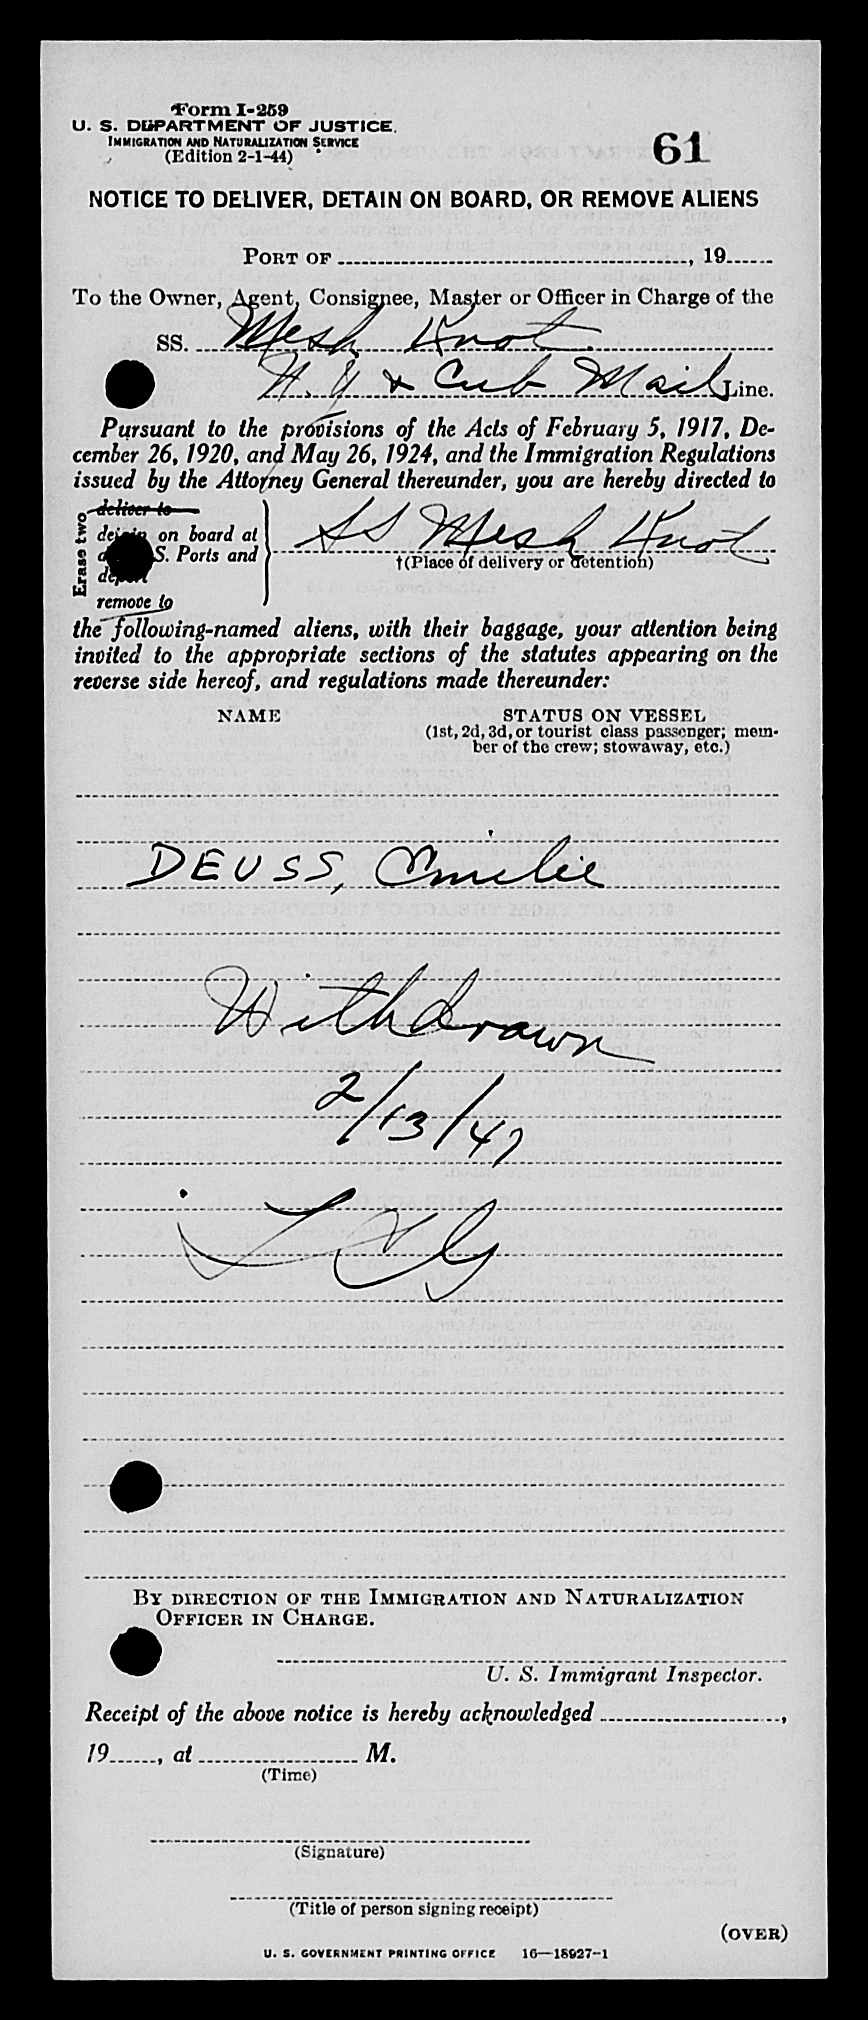 Form I-259
U. S. DEPARTMENT OF JUSTICE.
IMMIGRATION AND NATURALIZATION SERVICE
(Edition 2-1-44)
61
NOTICE TO DELIVER, DETAIN ON BOARD, OR REMOVE ALIENS
PORT OF ........................................, 19......
To the Owner, Agent, Consignee, Master or Officer in Charge of the
SS. Mesh Knot
N.Y & Cub Mail Line.
Pursuant to the provisions of the Acts of February 5, 1917, De-
cember 26, 1920, and May 26, 1924, and the Immigration Regulations
issued by the Attorney General thereunder, you are hereby directed to
Erase two
deliver to
detain on board at
S. Ports and
SS Mesh Knot
†(Place of delivery or detention)
deport
remove to
the following-named aliens, with their baggage, your attention being
invited to the appropriate sections of the statutes appearing on the
reverse side hereof, and regulations made thereunder:
NAME
STATUS ON VESSEL
(1st, 2d, 3d, or tourist class passenger; mem-
ber of the crew; stowaway, etc.)
DEUSS, Emilie
Withdrawn
2/13/47
BY DIRECTION OF THE IMMIGRATION AND NATURALIZATION
OFFICER IN CHARGE.
U. S. Immigrant Inspector.
Receipt of the above notice is hereby acknowledged ........................,
19......, at .................... M.
(Time)
(Signature)
(Title of person signing receipt)
(OVER)
U. S. GOVERNMENT PRINTING OFFICE 16—18927-1